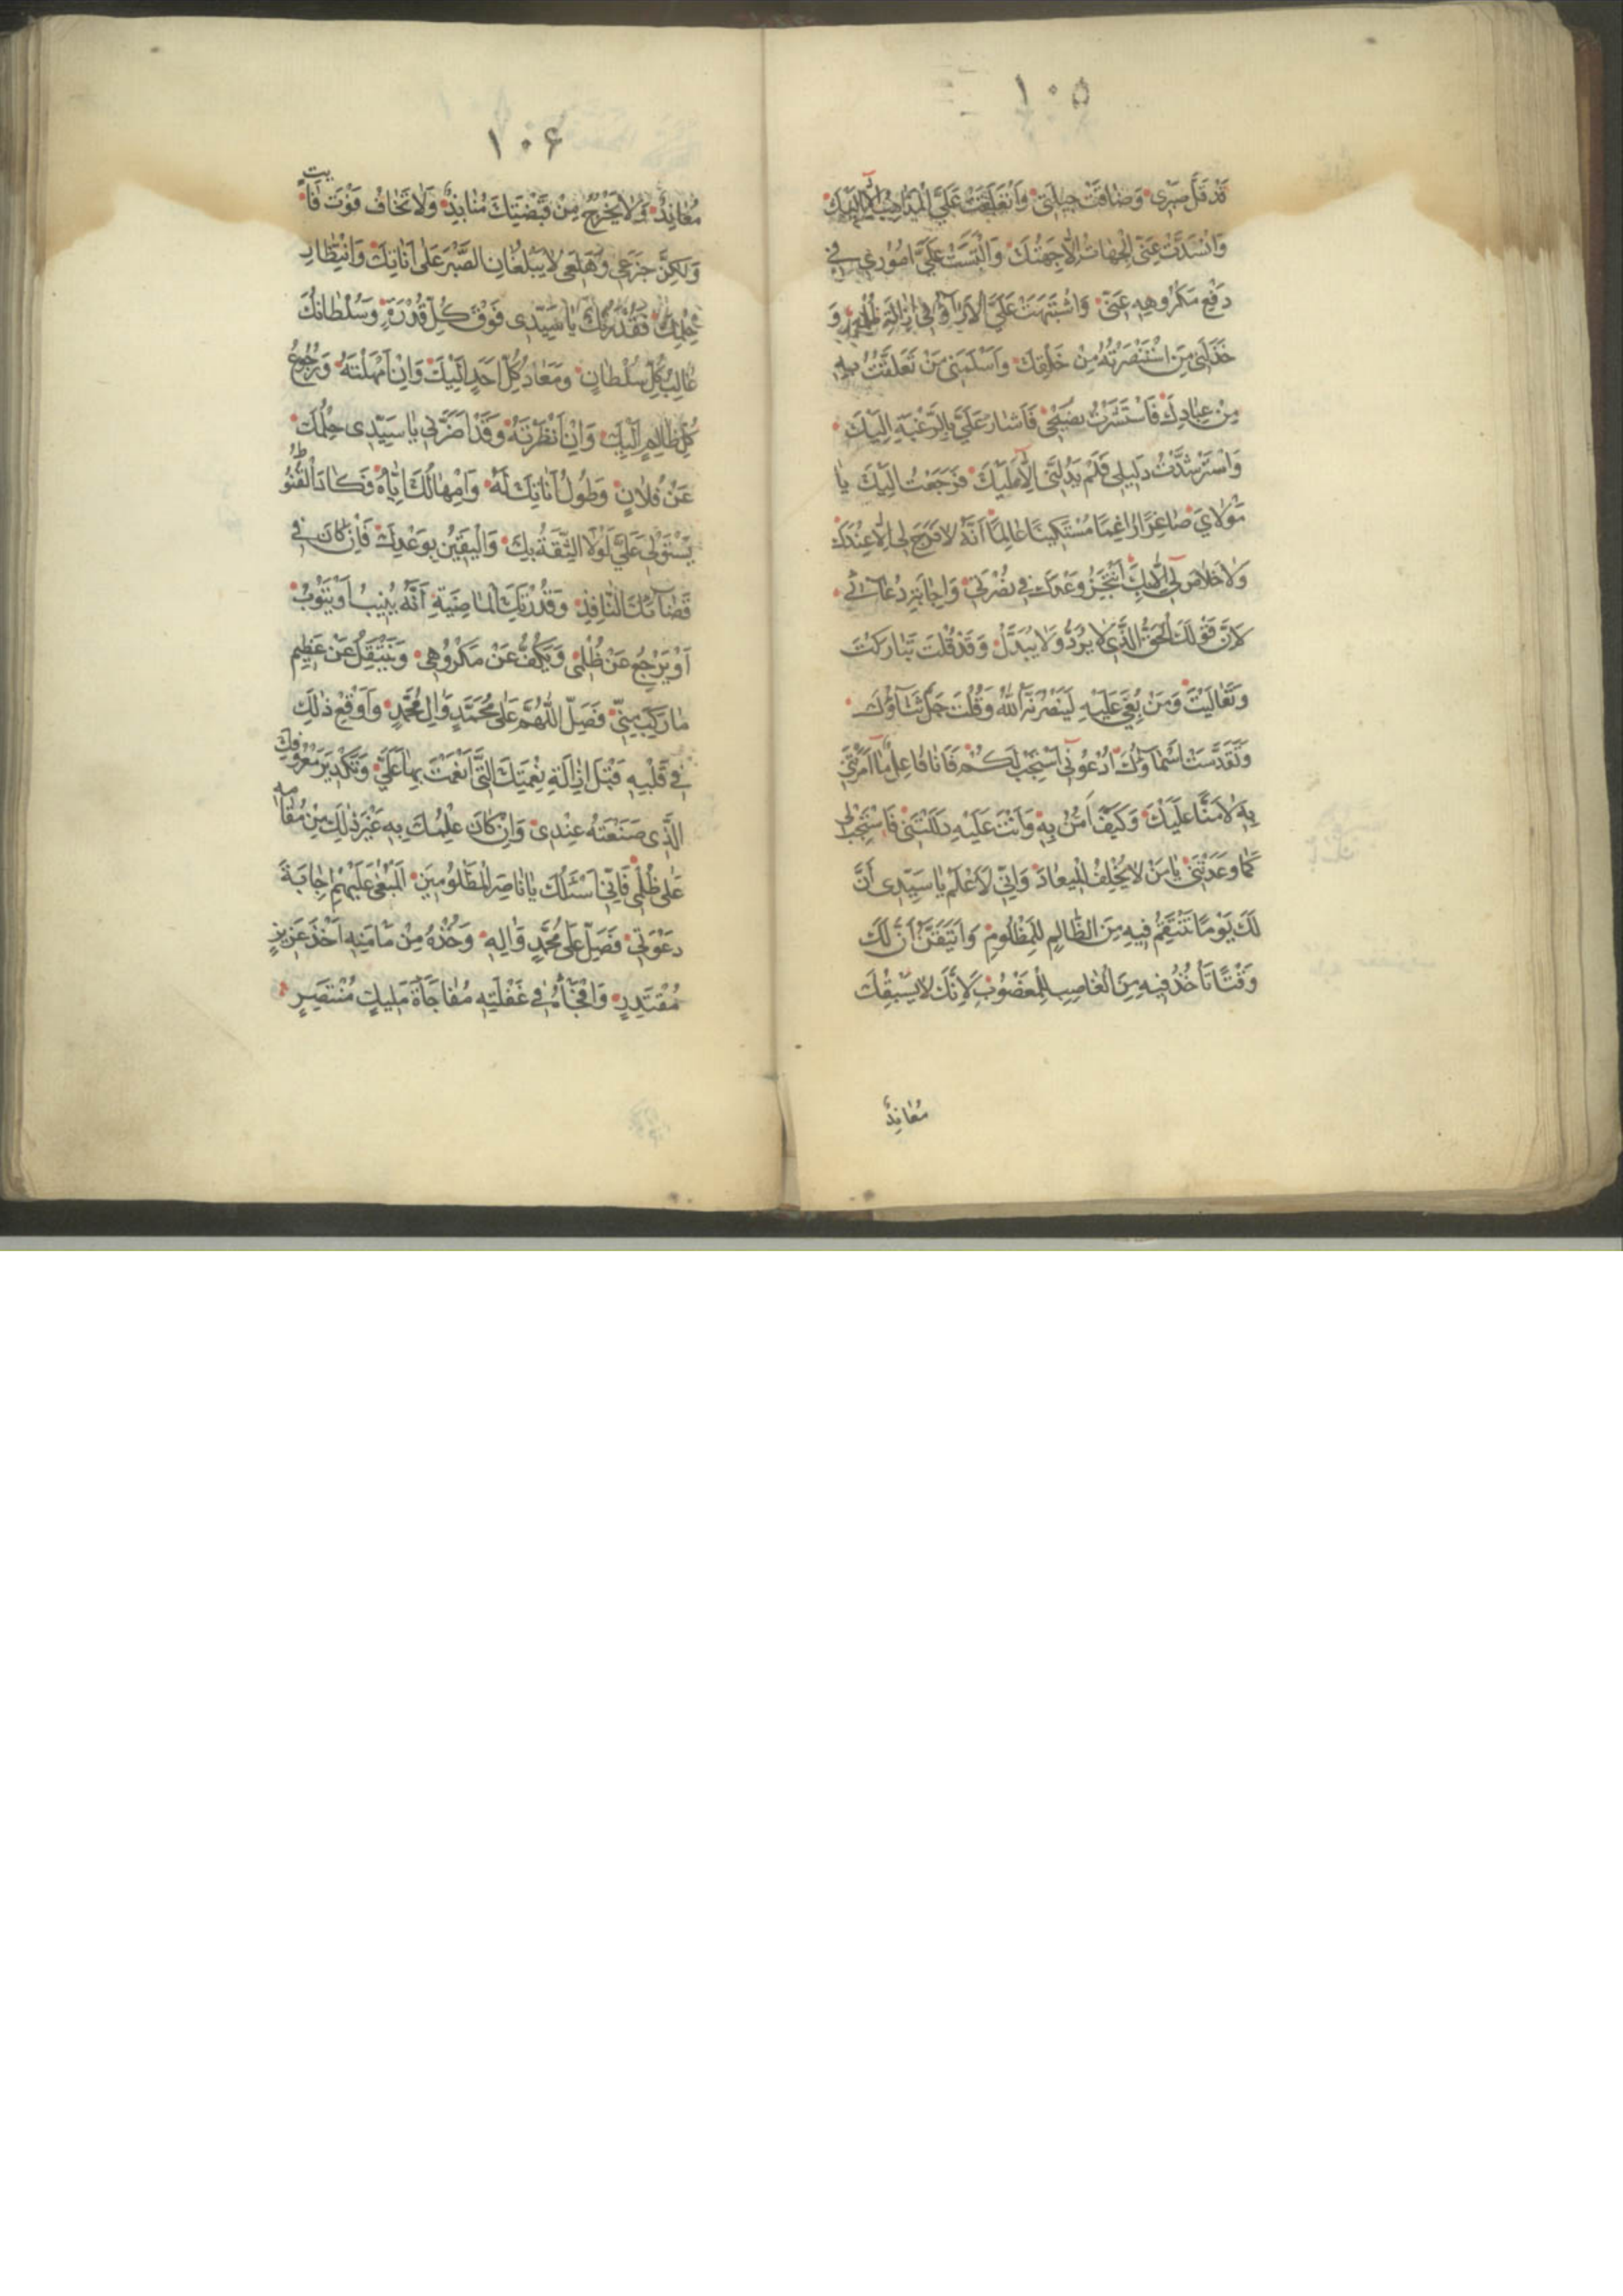 ١٠٥
قَدْ قَلَّ صَبْرِي وَضَاقَتْ حِيلَتِي وَانْغَلَقَتْ عَلَيَّ الْمَذَاهِبُ اِلَّا اِلَيْكَ
وَانْسَدَّتْ عَنِّي الْجِهَاتُ اِلَّا جِهَتُكَ وَالْتَبَسَتْ عَلَيَّ اُمُورِي فِي
دَفْعِ مَكْرُوهِهِ عَنِّي وَاشْتَبَهَتْ عَلَيَّ الْاٰرَآءُ فِي اِزَالَةِ ظُلْمِهِ وَ
خَذَلَنِي مَنِ اسْتَنْصَرْتُهُ مِنْ خَلْقِكَ وَاَسْلَمَنِي مَنْ تَعَلَّقْتُ بِهِ
مِنْ عِبَادِكَ فَاسْتَشَرْتُ نَصِيحِي فَاَشَارَ عَلَيَّ بِالرَّغْبَةِ اِلَيْكَ
وَاسْتَرْشَدْتُ دَلِيلِي فَلَمْ يَدُلَّنِي اِلَّا عَلَيْكَ فَرَجَعْتُ اِلَيْكَ يَا
مَوْلَايَ صَاغِرًا رَاغِمًا مُسْتَكِينًا عَالِمًا اَنَّهُ لَا فَرَجَ لِي اِلَّا عِنْدَكَ
وَلَا خَلَاصَ لِي اِلَّا بِكَ اَنْتَجِزُ وَعْدَكَ فِي نُصْرَتِي وَاِجَابَةِ دُعَآئِي
لِاَنَّ قَوْلَكَ الْحَقُّ الَّذِي لَا يُرَدُّ وَلَا يُبَدَّلُ وَقَدْ قُلْتَ تَبَارَكْتَ
وَتَعَالَيْتَ وَمَنْ بُغِيَ عَلَيْهِ لَيَنْصُرَنَّهُ اللهُ وَقُلْتَ جَلَّ ثَنَآؤُكَ
وَتَقَدَّسَتْ اَسْمَآؤُكَ اُدْعُونِي اَسْتَجِبْ لَكُمْ فَاَنَا فَاعِلٌ مَا اَمَرْتَنِي
بِهِ لَا مَنًّا عَلَيْكَ وَكَيْفَ اَمُنُّ بِهِ وَاَنْتَ عَلَيْهِ دَلَلْتَنِي فَاسْتَجِبْ لِي
كَمَا وَعَدْتَنِي يَا مَنْ لَا يُخْلِفُ الْمِيعَادَ وَاِنِّي لَاَعْلَمُ يَا سَيِّدِي اَنَّ
لَكَ يَوْمًا تَنْتَقِمُ فِيهِ مِنَ الظَّالِمِ لِلْمَظْلُومِ وَاَتَيَقَّنُ اَنَّ لَكَ
وَقْتًا تَاْخُذُ فِيهِ مِنَ الْغَاصِبِ لِلْمَغْصُوبِ لِاَنَّكَ لَا يَسْبِقُكَ
مُعَانِدٌ
١٠۶
مُعَانِدٌ وَلَا يَخْرُجُ مِنْ قَبْضَتِكَ مُنَابِذٌ وَلَا تَخَافُ فَوْتَ فَايتٍ
وَلٰكِنَّ جَزَعِي وَهَلَعِي لَا يَبْلُغَانِ الصَّبْرَ عَلَى اَنَاتِكَ وَانْتِظَارِ
حِلْمِكَ فَقُدْرَتُكَ يَا سَيِّدِي فَوْقَ كُلِّ قُدْرَةٍ وَسُلْطَانُكَ
غَالِبُ كُلِّ سُلْطَانٍ وَمَعَادُ كُلِّ اَحَدٍ اِلَيْكَ وَاِنْ اَمْهَلْتَهُ وَرُجُوعُ
كُلِّ ظَالِمٍ اِلَيْكَ وَاِنْ اَنْظَرْتَهُ وَقَدْ اَضَرَّنِي يَا سَيِّدِي حِلْمُكَ
عَنْ فُلَانٍ وَطُولُ اَنَاتِكَ لَهُ وَاِمْهَالُكَ اِيَّاهُ فَكَادَ الْقُنُوطُ
يَسْتَوْلِي عَلَيَّ لَوْلَا الثِّقَةُ بِكَ وَالْيَقِينُ بِوَعْدِكَ فَاِنْ كَانَ فِي
قَضَآئِكَ النَّافِذِ وَقُدْرَتِكَ الْمَاضِيَةِ اَنَّهُ يُنِيبُ اَوْ يَتُوبُ
اَوْ يَرْجِعُ عَنْ ظُلْمِي وَيَكُفُّ عَنْ مَكْرُوهِي وَيَنْتَقِلُ عَنْ عَظِيمِ
مَا رَكِبَ مِنِّي فَصَلِّ اللّٰهُمَّ عَلَى مُحَمَّدٍ وَاٰلِ مُحَمَّدٍ وَاَوْقِعْ ذٰلِكَ
فِي قَلْبِهِ قَبْلَ اِزَالَةِ نِعْمَتِكَ الَّتِي اَنْعَمْتَ بِهَا عَلَيَّ وَتَكْدِيرِ مَعْرُوفِكَ
الَّذِي صَنَعْتَهُ عِنْدِي وَاِنْ كَانَ عِلْمُكَ بِهِ غَيْرَ ذٰلِكَ مِنْ مُقَامِهِ
عَلَى ظُلْمِي فَاِنِّي اَسْئَلُكَ يَا نَاصِرَ الْمَظْلُومِينَ الْمَبْغِيِّ عَلَيْهِمْ اِجَابَةَ
دَعْوَتِي فَصَلِّ عَلَى مُحَمَّدٍ وَاٰلِهِ وَخُذْهُ مِنْ مَاْمَنِهِ اَخْذَ عَزِيزٍ
مُقْتَدِرٍ وَافْجَأْهُ فِي غَفْلَتِهِ مُفَاجَأَةَ مَلِيكٍ مُنْتَصِرٍ